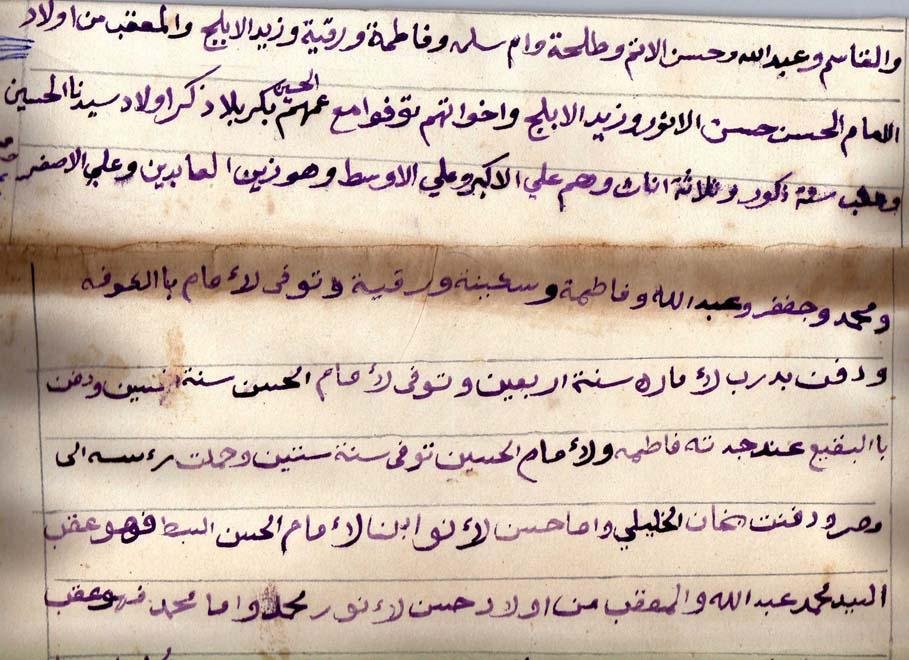 والقاسم وعبدالله وحسن الاثم وطلحة وام سلمه وفاطمة ورقية وزيد الابلج والمعقب من اولاد
الامام الحسن حسن الانور وزيد الابلج واخوانهم توفوا مع عمهم الحسين بكربلا ذكر اولاد سيدنا الحسين
وعقب ستة ذكور وثلاثة اناث وهم علي الاكبر وعلي الاوسط وهو زين العابدين وعلي الاصغر
ومحمد وجعفر وعبد الله وفاطمة وسكينة ورقية وتوفى لأمام باالكوفه
ودفن بدرب لأماره سنة اربعين وتوفى لأمام الحسن سنة ودفن
باالبقيع عند جدته فاطمه ولأمام الحسين توفى سنة ستين وحملت رءسه الى
مصر ودفنت بخان الخليلي واما حسن لأنو ابن لأمام الحسن السبط فهو عقب
السيد محمد عبد الله والمعقب من اولاد حسن لأنور محمد واما محمد فهو عقب